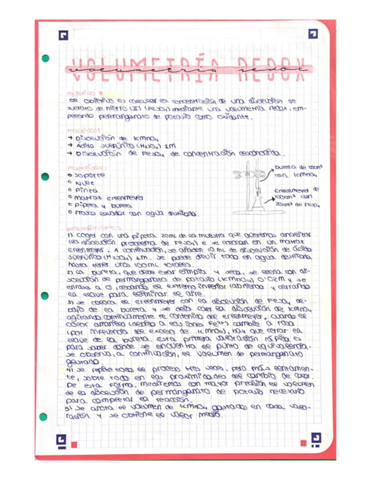 VOLUMETRÍA REDOX
volumetría redox
objetivo
El objetivo es calcular la concentración de una disolución de
sulfato de hierro (II) (FeSO₄) mediante una volumetría redox, em-
pleando permanganato de potasio como oxidante.
→ Disolución de KMnO₄
→ Ácido sulfúrico (H₂SO₄) 2M
→ Disolución de FeSO₄ de concentración desconocida.
→ soporte
→ nuez
→ pinza
→ matraz erlenmeyer
→ pipeta y bureta
→ frasco lavador con agua destilada.
bureta de
con KMnO₄
Erlenmeyer de
con
de FeSO₄
1) Coger con una pipeta de la muestra que queremos analizar
(la disolución problema de FeSO₄) e se colocan en un matraz
erlenmeyer. A continuación, se añaden 10 mL de disolución de ácido
sulfúrico (H₂SO₄) 2M. Se puede diluir todo en agua destilada,
hasta tener unos totales.
2) La bureta, que debe estar limpia y seca, se llena con di-
solución de permanganato de potasio (KMnO₄) 0.02M y se
enrasa a 0, llenando el extremo inferior también y cerrando
la llave para eliminar el aire.
3) Se coloca el erlenmeyer con la disolución de FeSO₄ de-
bajo de la bureta y se deja caer la disolución de KMnO₄
agitando continuamente el contenido del erlenmeyer, cuando el
color amarillo debido a los iones Fe³⁺ cambie a rosa
(por influencia del exceso de KMnO₄) hay que cerrar la
llave de la bureta. Esta primera valoración rápida es
para saber donde se encuentra el punto de equivalencia.
Se observa, a continuación, el volumen de permanganato
gastado.
4) Se repite todo el proceso tres veces, pero más lentamen-
te, sobre todo en las proximidades del cambio de color.
De esta forma, mediremos con mayor precisión el volumen
de la disolución de permanganato de potasio necesario
para completar la reacción.
5) Se anota el volumen de KMnO₄ gastado en cada valo-
ración y se obtiene el valor medio.